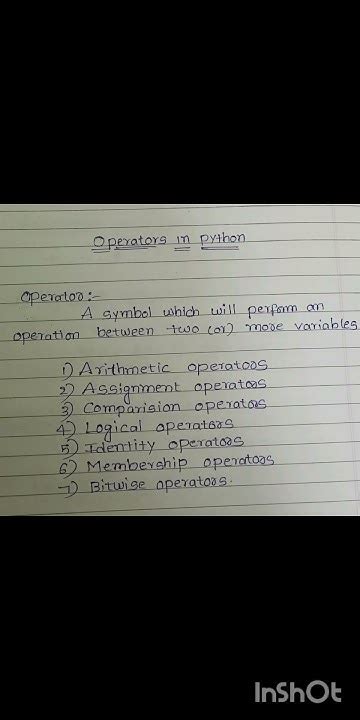 Operators in python
Operator:-
A symbol which will perform an
operation between two (or) more variables
1) Arithmetic operators
2) Assignment operators
3) Comparision operators
4) Logical operators
5) Identity operators
6) Membership operators
7) Bitwise operators.
InShOt